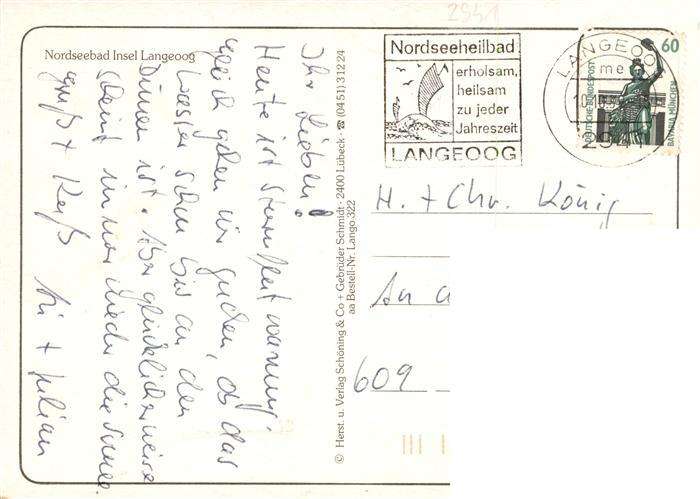 2941
Nordseebad Insel Langeoog
Ihr Lieben!
Heute ist Sturmflutwarnung.
gleich gehen wir gucken, ob das
Wasser schon bis an den
Dünen ist. Aber glücklicherweise
scheint immer wieder die Sonne
Gruß + Kuß
+ Julian
© Herst. u. Verlag Schöning & Co + Gebrüder Schmidt · 2400 Lübeck · ☎ (0451) 3 12 24
aa Bestell-Nr. Lango 322
Nordseeheilbad
erholsam,
heilsam
zu jeder
Jahreszeit
LANGEOOG
LANGEOO
me
60
DEUTSCHE BUNDESPOST
BAVARIA MÜNCHEN
H. + Chr. König
An
609